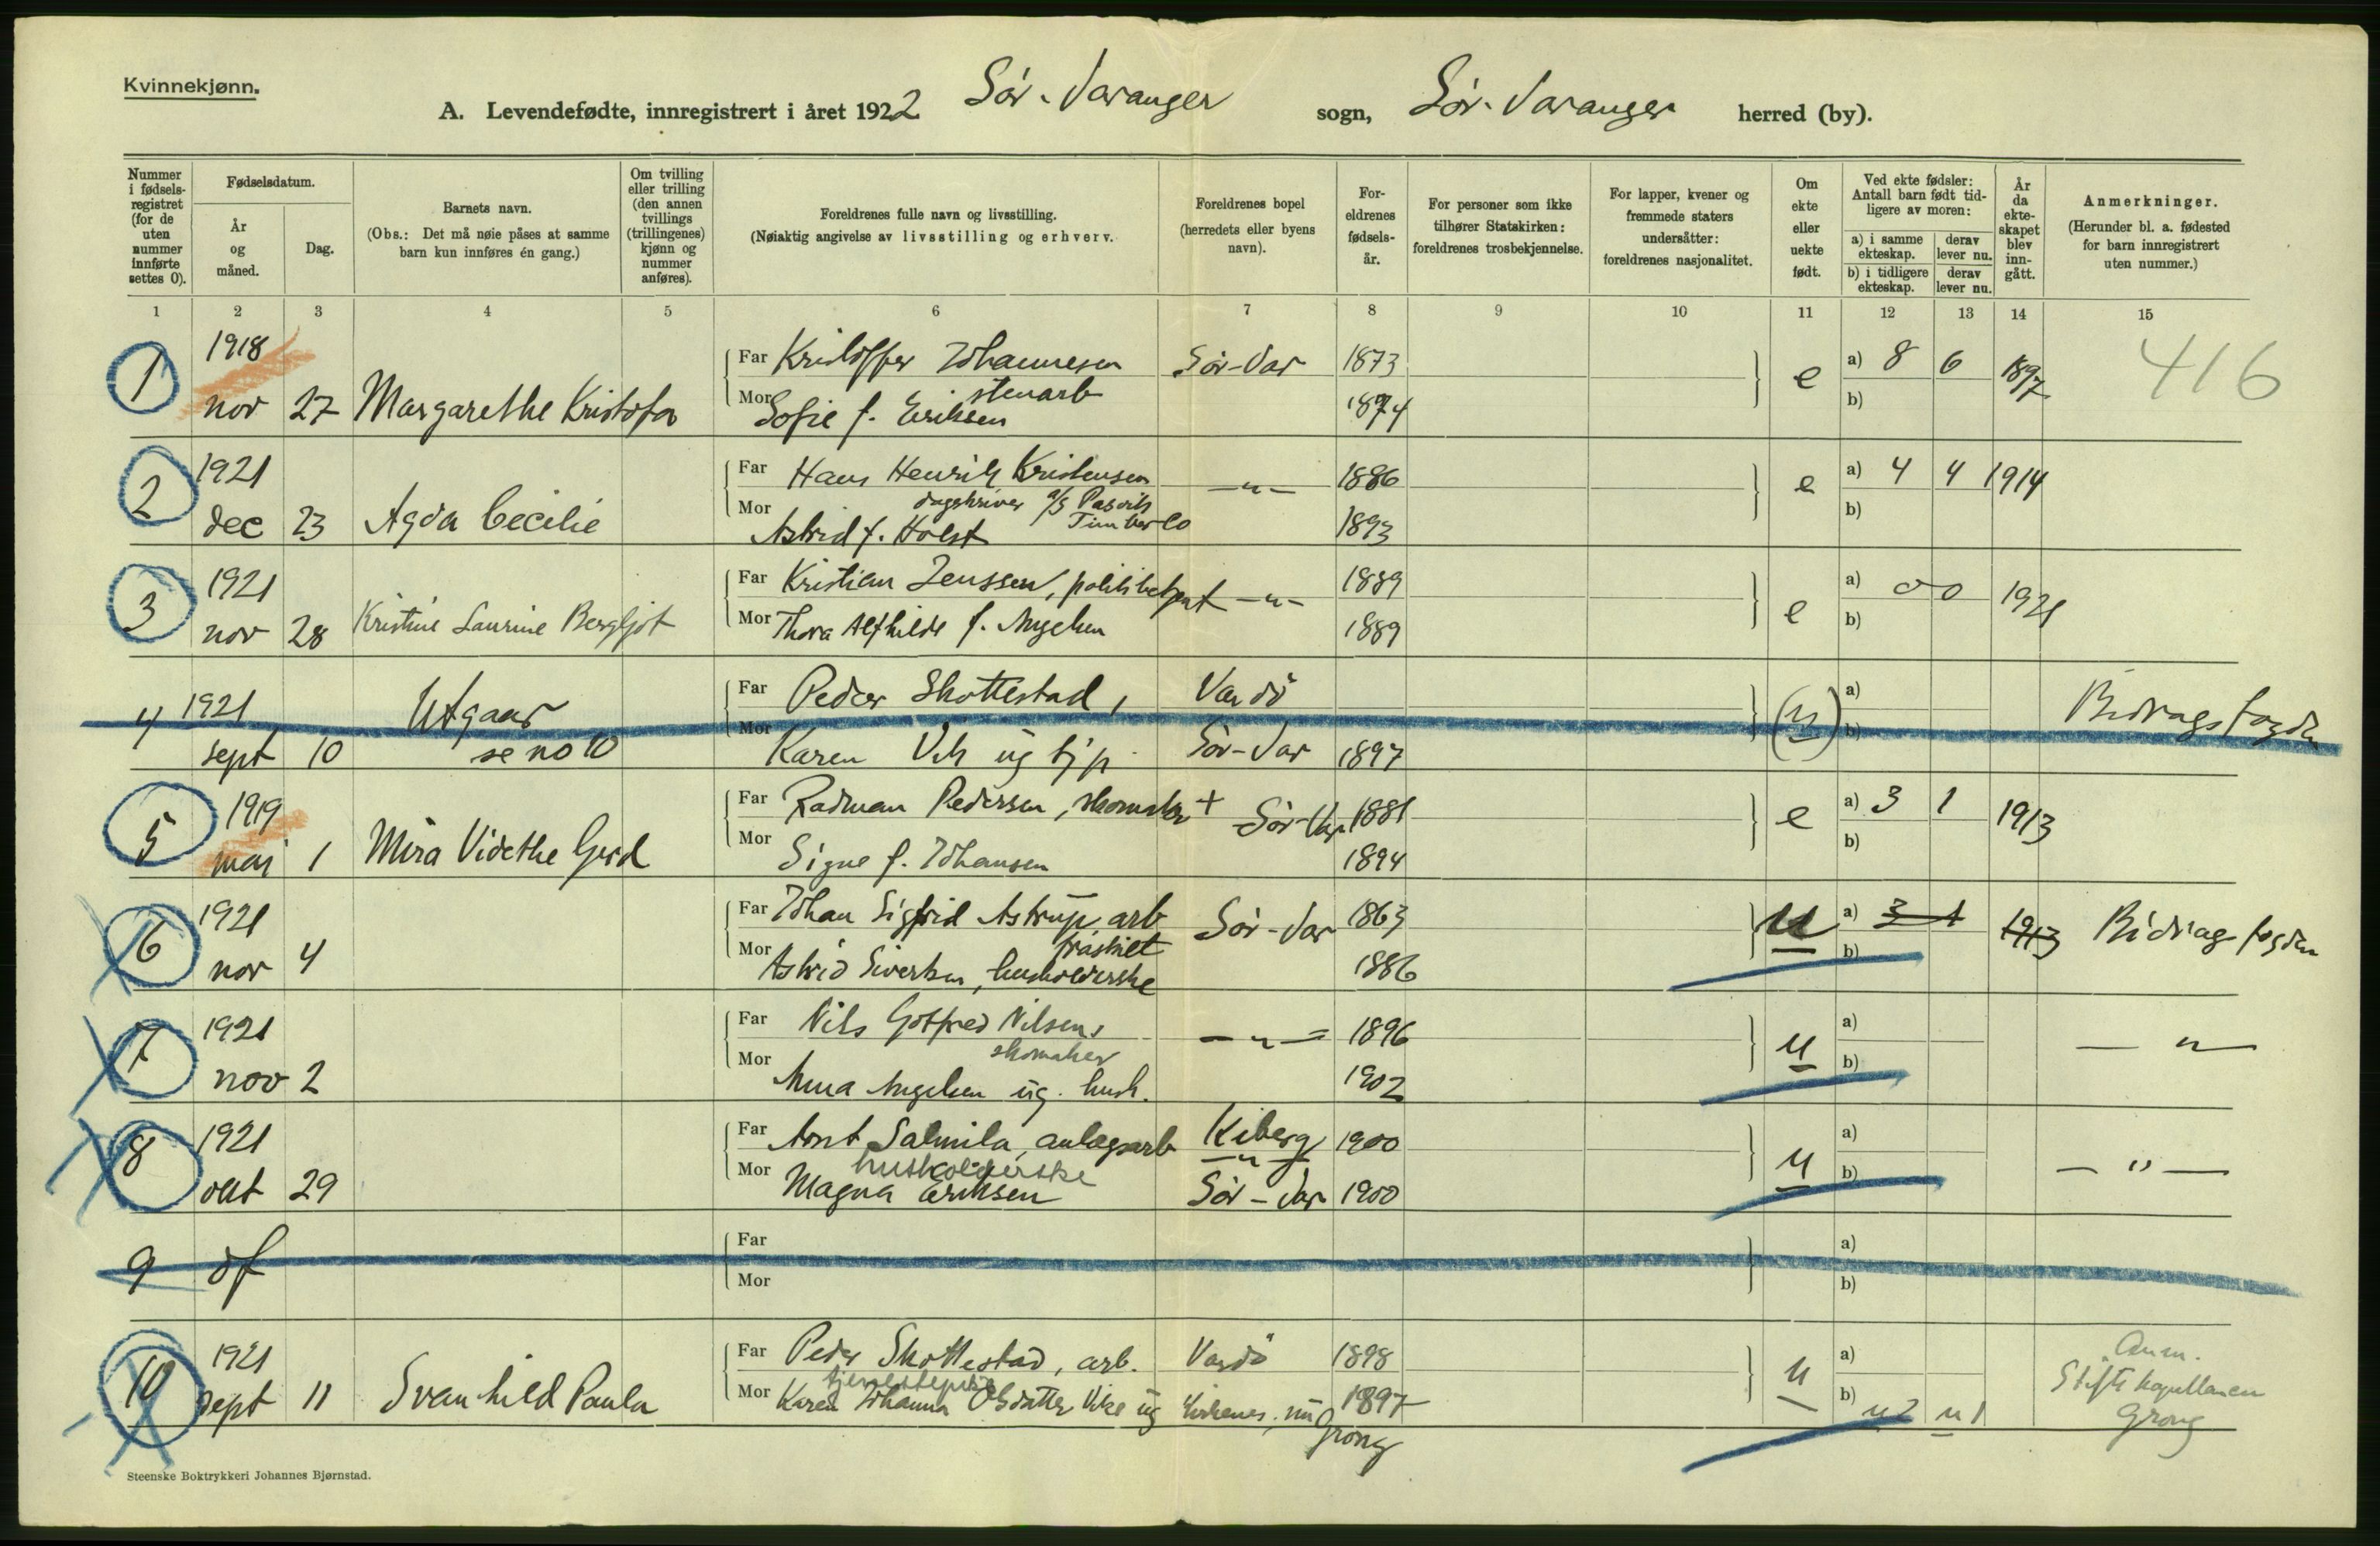 Kvinnekjønn.
A. Levendefødte, innregistrert i året 1922 Sør-Varanger sogn, Sør-Varanger herred (by).
Nummer i fødselsregistret (for de uten nummer innførte settes 0).
Fødselsdatum.
År og måned.
Dag.
Barnets navn.
(Obs.: Det må nøie påses at samme barn kun innføres én gang.)
Om tvilling eller trilling (den annen tvillings (trillingenes) kjønn og nummer anføres).
Foreldrenes fulle navn og livsstilling.
(Nøiaktig angivelse av livsstilling og erhverv.
Foreldrenes bopel
(herredets eller byens navn).
Foreldrenes fødselsår.
For personer som ikke tilhører Statskirken: foreldrenes trosbekjennelse.
For lapper, kvener og fremmede staters undersåtter: foreldrenes nasjonalitet.
Om ekte eller uekte født.
Ved ekte fødsler: Antall barn født tidligere av moren:
a) i samme ekteskap.
derav lever nu.
b) i tidligere ekteskap.
derav lever nu.
År da ekteskapet blev inngått.
Anmerkninger.
(Herunder bl. a. fødested for barn innregistrert uten nummer.)
1 2 3 4 5 6 7 8 9 10 11 12 13 14 15
1 1918 Far Kristoffer Johannesen Sör-Var 1873 e a) 8 6 1897 416
nov 27 Margarethe Kristofa Mor stenarb
Sofie f. Eriksen 1874 b)
2 1921 Far Hans Henrik Kristensen —"— 1886 e a) 4 4 1914
dec 23 Agda Cecilie Mor dagskriver a/s Pasvik Timber Co
Astrid f. Holst 1893 b)
3 1921 Far Kristian Jenssen, politibetjent —"— 1889 e a) 0 0 1921
nov 28 Kristine Laurine Bergljot Mor Thora Alfhilde f. Angelsen 1889 b)
4 1921 Utgaar Far Peder Skottestad, Vardö (u) a) Bidragsfogden
sept 10 se no 10 Mor Karen Vik ug tj.p. Sör-Var 1897 b)
5 1919 Far Radman Pedersen, skomaker + Sör-Var 1881 e a) 3 1 1913
mai 1 Mira Videthe Gerd Mor Signe f. Johansen 1894 b)
6 1921 Far Johan Sigfrid Astrup, arb Sör-Var 1863 u a) 3 1 1913 Bidragsfogden
nov 4 Mor fraskilt
Astrid Sivertsen, husholderske 1886 b)
7 1921 Far Nils Gotfred Nilsen, —"— 1896 u a) — " —
nov 2 Mor skomaker
Anna Angelsen ug. hush. 1902 b)
8 1921 Far Arnt Salmila, anlegsarb Kiberg 1900 u a) — " —
okt 29 Mor husholderske —"—
Magna Eriksen Sör-Var 1900 b)
9 df Far a)
Mor b)
10 1921 Far Peder Skottestad, arb. Vardö 1898 u a) Anm.
sept 11 Svanhild Paula Mor tjenestepike
Karen Johanna Olsdatter Vike ug Kirkenes, nu Grong 1897 b) u 2 u 1 Stiftskapellanen Grong
Steenske Boktrykkeri Johannes Bjørnstad.